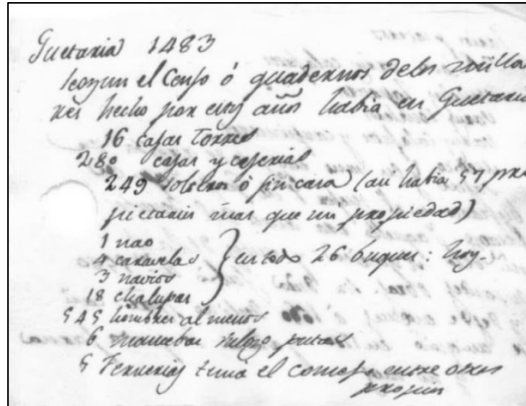 Guetaria 1483
segun el Censo ó quadernos delos millares
res hecho por estos años habia en Guetaria
16 casas Torres
280 casas y caserias
249 solseros ó sin casa (asi habia 57 pro
pietarios mas que mi propiedad)
1 nao
4 caravelas
3 navios } en todo 26 buques: hoy-
18 chalupas
545 hombres al menos
6
5 Ferrerias tenia el consejo entre otros
propios